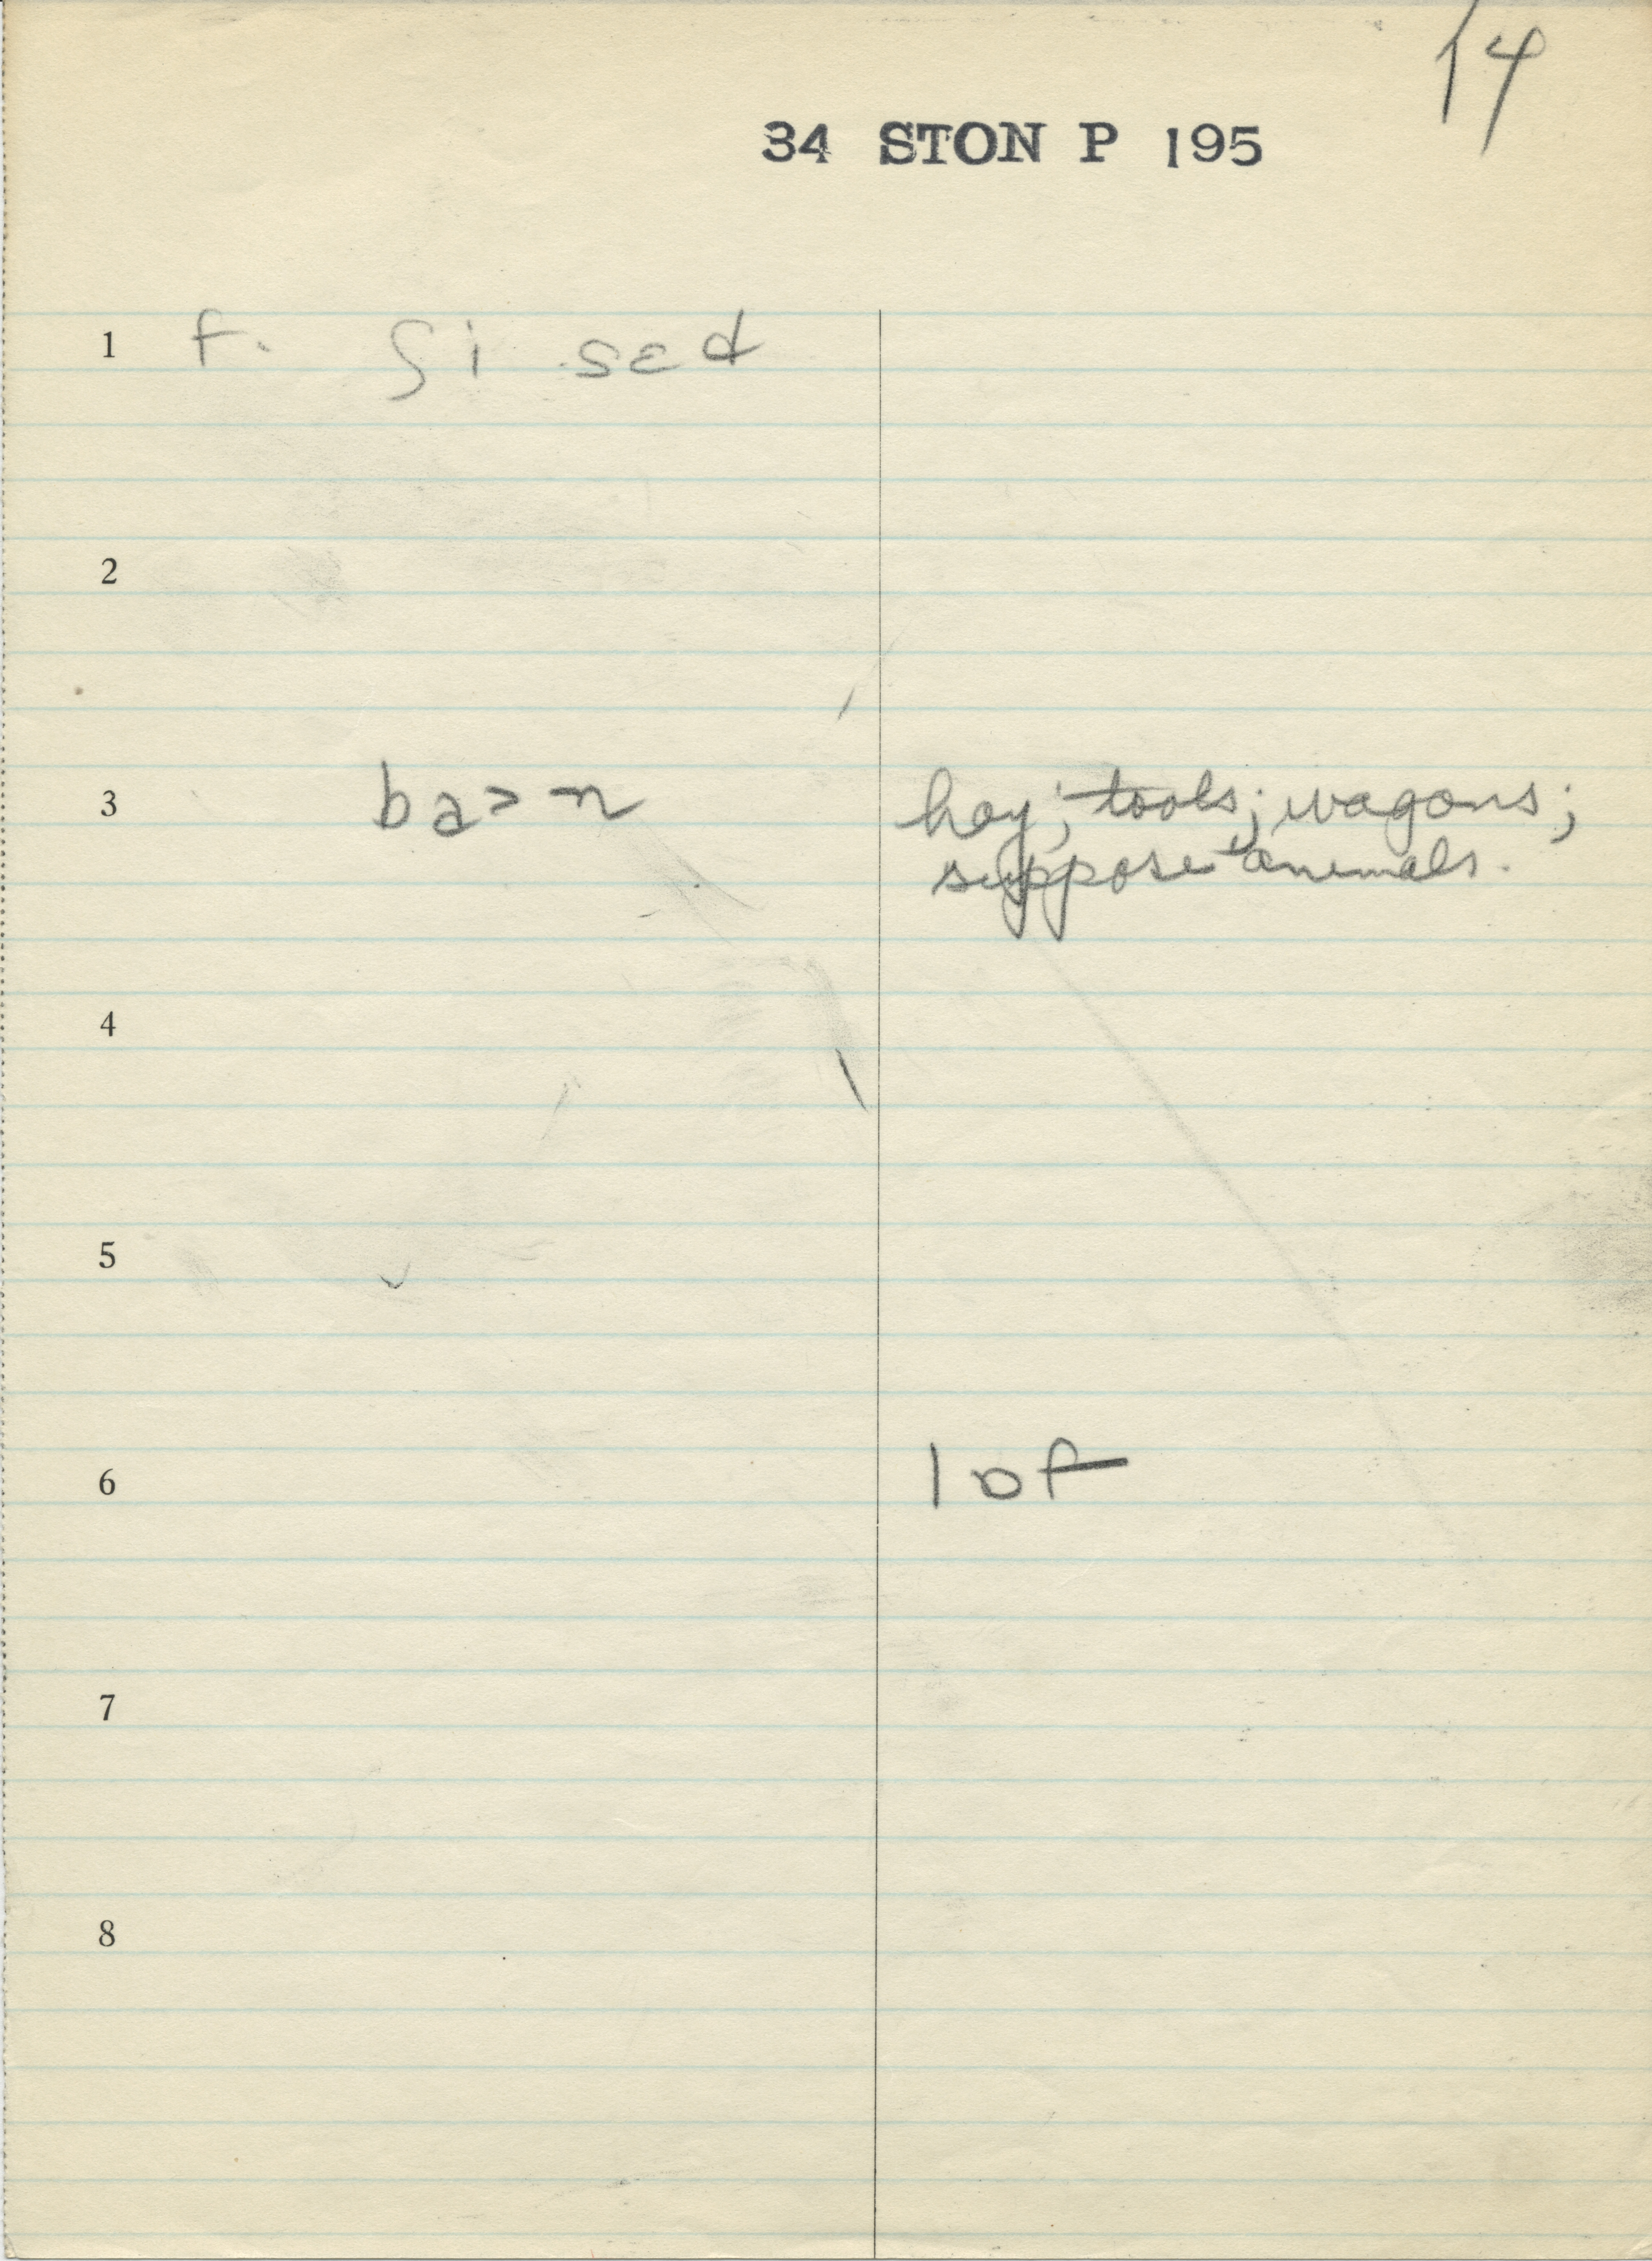 14
34 STON P 195
1 f. ʃi sɛd
2
3 ba>n hay; tools; wagons;
suppose animals.
4
5
6 lɒf
7
8